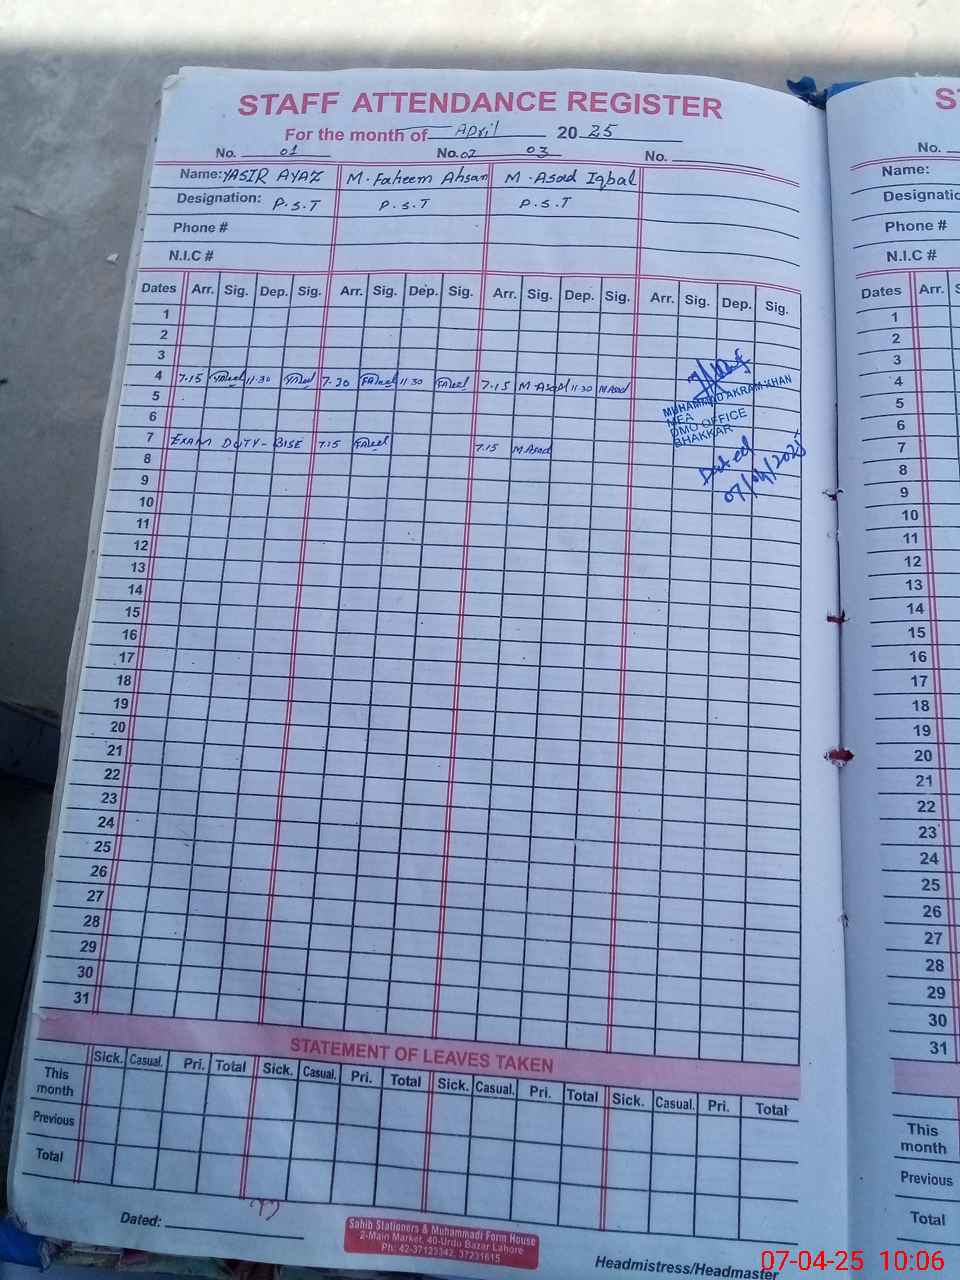 STAFF ATTENDANCE REGISTER
For the month of April 2025
No. 01 No. 02 03 No.
Name: YASIR AYAZ M. Faheem Ahsan M. Asad Iqbal
Designation: P.S.T P.S.T P.S.T
Phone #
N.I.C #
Dates Arr. Sig. Dep. Sig. Arr. Sig. Dep. Sig. Arr. Sig. Dep. Sig. Arr. Sig. Dep. Sig.
1
2
3
4 7.15 11.30 7.30 11.30 7.15 M Asad 11 30 M Asad
MUHAMMAD AKRAM KHAN
MEA
DMO OFFICE
BHAKKAR
5
6
7 EXAM DUTY - BISE 7.15 7.15 M Asad
Dated
07/04/2025
8
9
10
11
12
13
14
15
16
17
18
19
20
21
22
23
24
25
26
27
28
29
30
31
STATEMENT OF LEAVES TAKEN
Sick. Casual. Pri. Total Sick. Casual. Pri. Total Sick. Casual. Pri. Total Sick. Casual. Pri. Total
This month
Previous
Total
Dated:
Sahib Stationers & Muhammadi Form House
2-Main Market, 40-Urdu Bazar Lahore
Ph: 42-37123342, 37231615
Headmistress/Headmaster
No.
Name:
Designatio
Phone #
N.I.C #
Dates Arr.
1
2
3
4
5
6
7
8
9
10
11
12
13
14
15
16
17
18
19
20
21
22
23
24
25
26
27
28
29
30
31
This month
Previous
Total
07-04-25 10:06